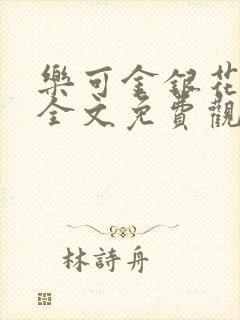 樂可金銀花
全文免費觀
林詩舟